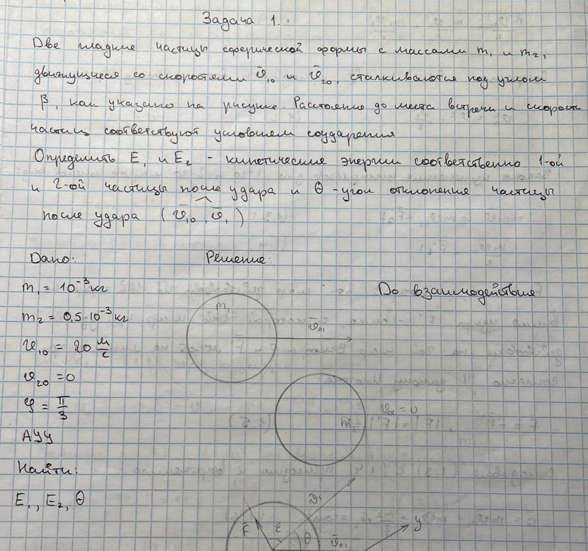 Задача 1.
Две гладкие частицы сферической формы с массами m₁ и m₂,
движущиеся со скоростями v̄₁₀ и v̄₂₀, сталкиваются под углом
β, как указано на рисунке. Расстояние до места встречи и скорость
частиц соответствуют условиям соударения
Определить E₁ и E₂ - кинетические энергии соответственно 1-ой
и 2-ой частицы после удара и θ - угол отклонения частицы
после удара (v̄₁₀, v̄₁)
Дано:
Решение:
m₁ = 10⁻³ кг
До взаимодействия
m₂ = 0,5·10⁻³ кг
v₁₀ = 20 м/с
v₂₀ = 0
φ = π/3
АУУ
Найти:
E₁, E₂, θ
m₁
v̄₀₁
m₂
= 0
F
ε
θ
v̄₀₁
y